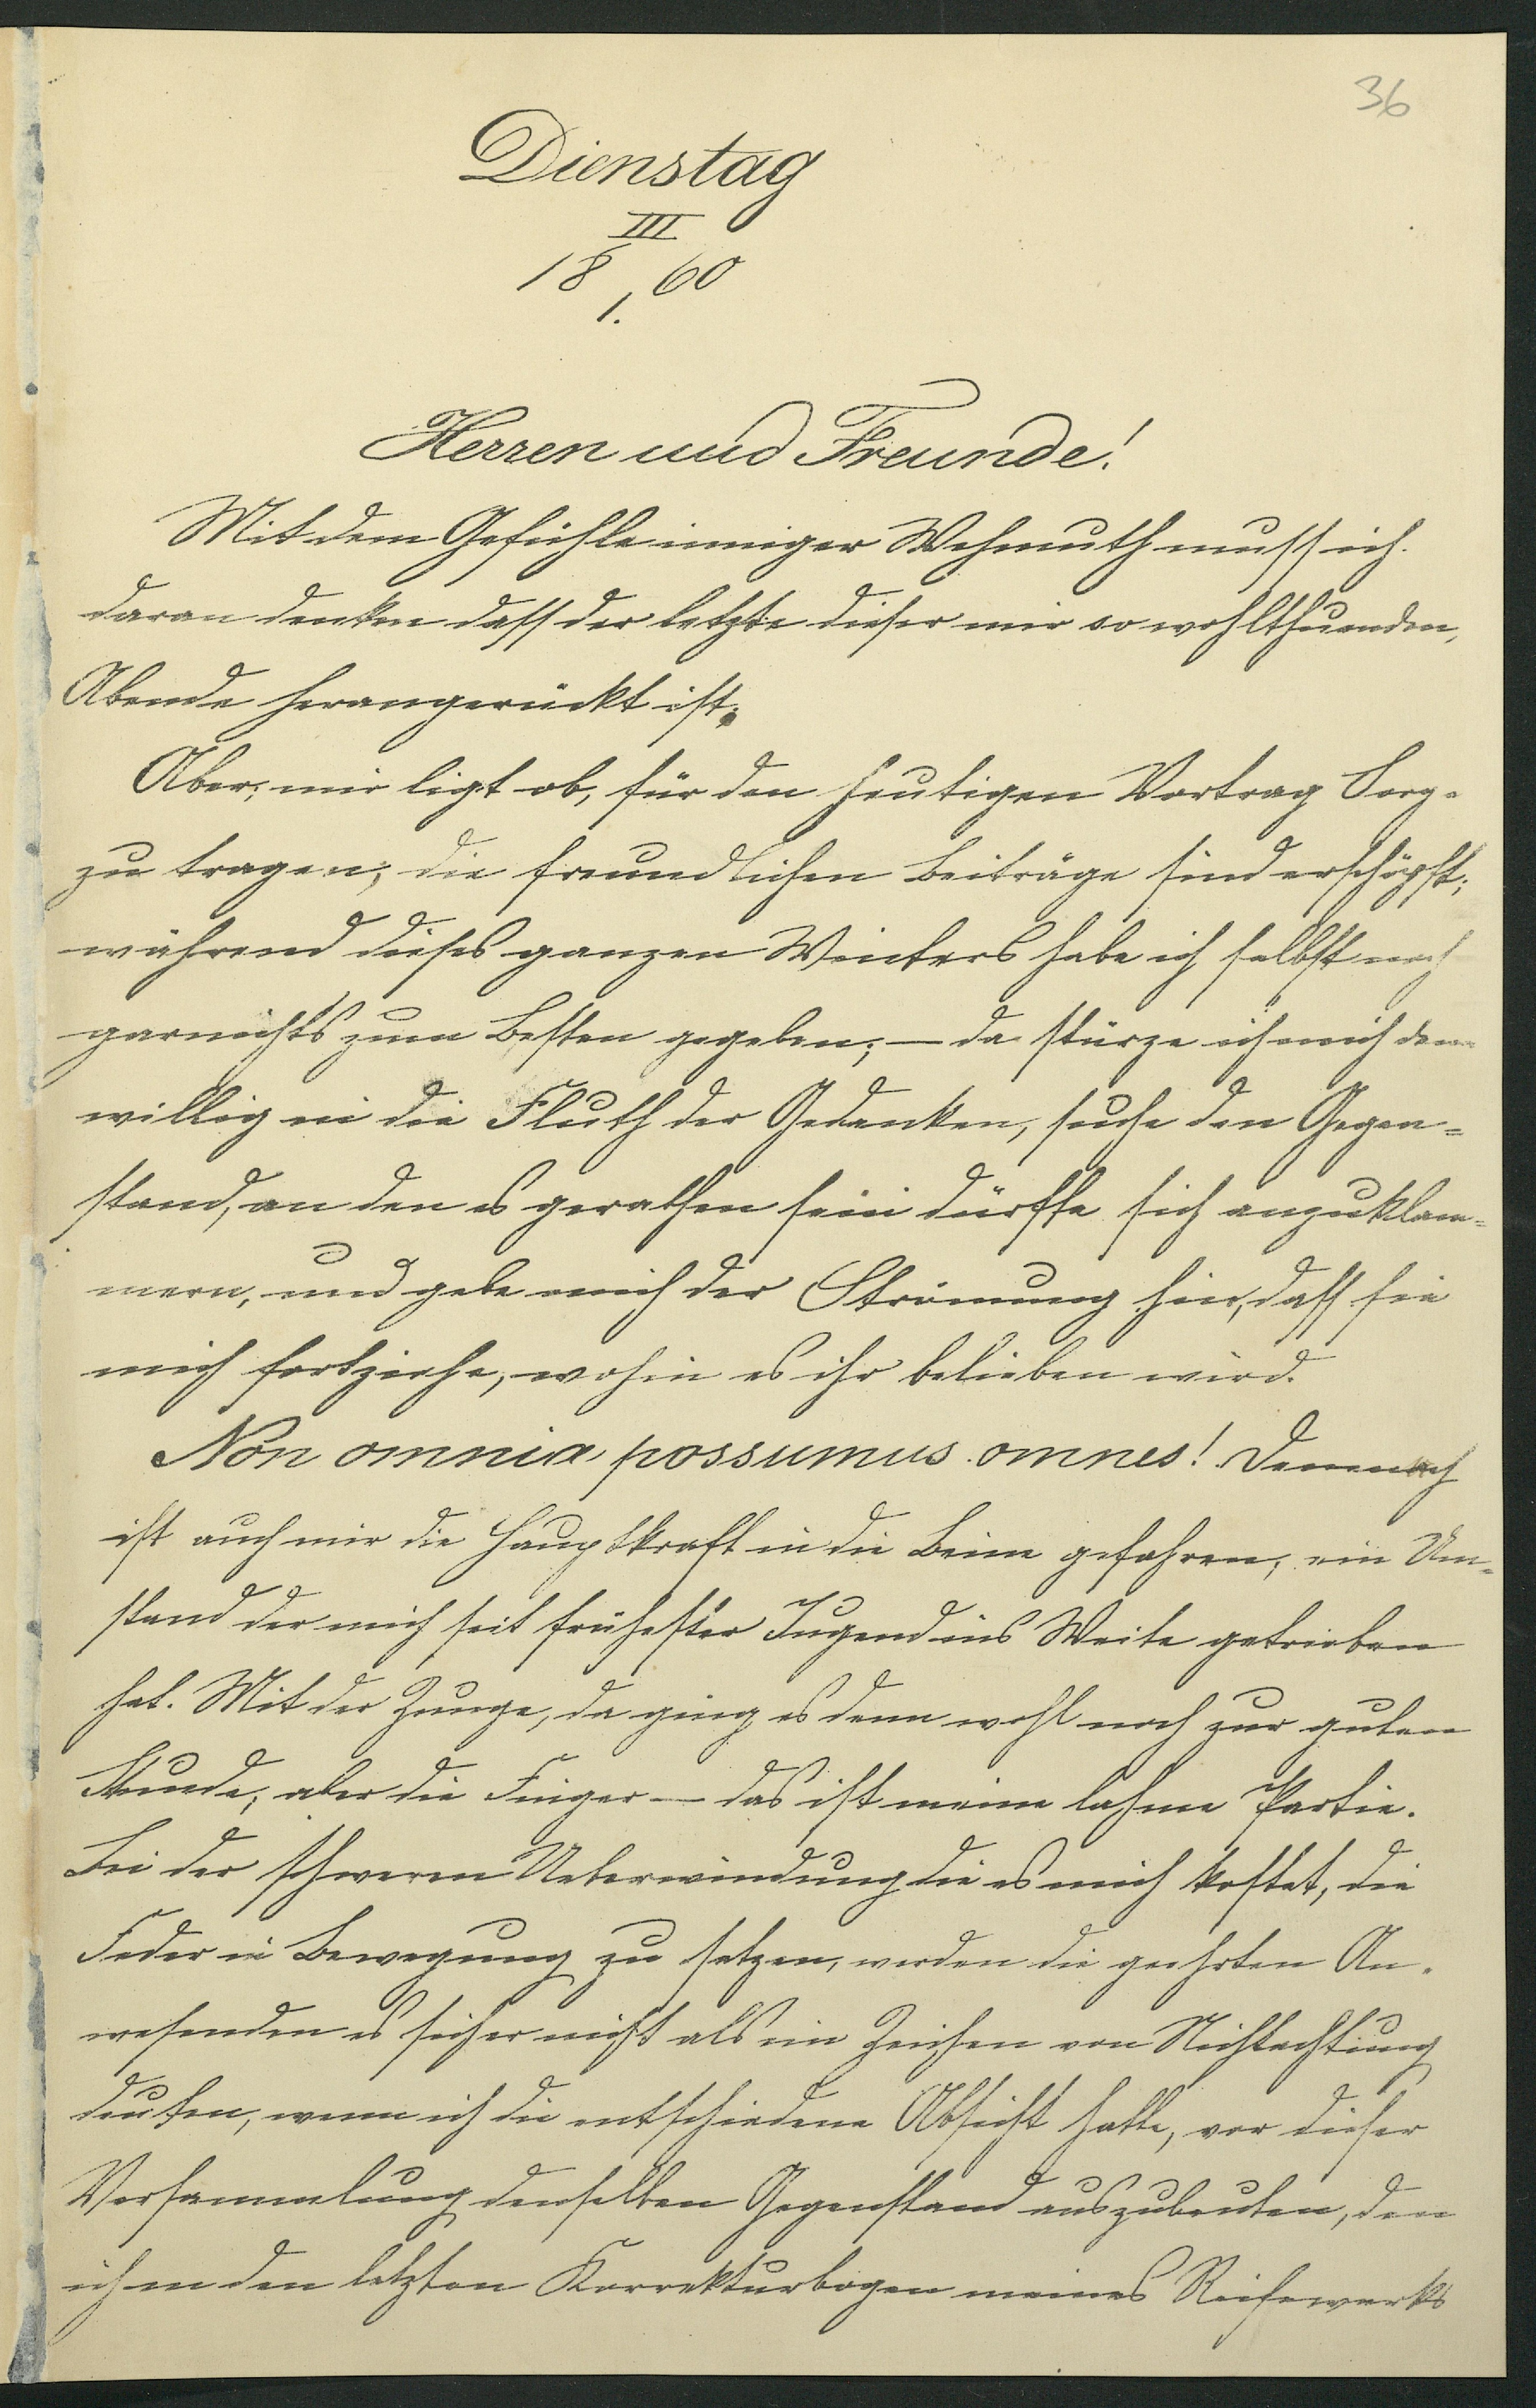 36
Dienstag
III
18 60
1.
Herren und Freunde!
Mit dem Gefühle inniger Wehmuth muss ich
daran denken dass der letzte dieser mir so wohlthuenden,
Abende herangerückt ist.
Aber, mir ligt ob, für den heutigen Vortrag Sorg-
zu tragen; die freundlichen Beiträge sind erschöpft;
während dieses ganzen Winters habe ich selbst noch
garnichts zum Besten gegeben; — da stürze ich mich denn
willig in die Fluth der Gedanken, suche den Gegen=
stand, an den es gerathen sein dürfte sich anzuklam=
mern, und gebe mich der Strömung hin, dass sie
mich fortziehe, wohin es ihr belieben wird.
Non omnia possumus omnes! Demnach
ist auch mir die Hauptkraft in die Beine gefahren, ein Um=
stand der mich seit frühester Jugend ins Weite getrieben
hat. Mit der Zunge, da ging es denn wohl noch zur guten
Stunde; aber die Finger — das ist meine lahme Partie.
Bei der schweren Ueberwindung die es mich kostet, die
Feder in Bewegung zu setzen, werden die geehrten An-
wesenden es sicher nicht als ein Zeichen von Nichtachtung
deuten, wenn ich die entschiedene Absicht hatte, vor dieser
Versammlung denselben Gegenstand auszubeuten, den
ich in den letzten Korrekturbogen meines Reisewerks